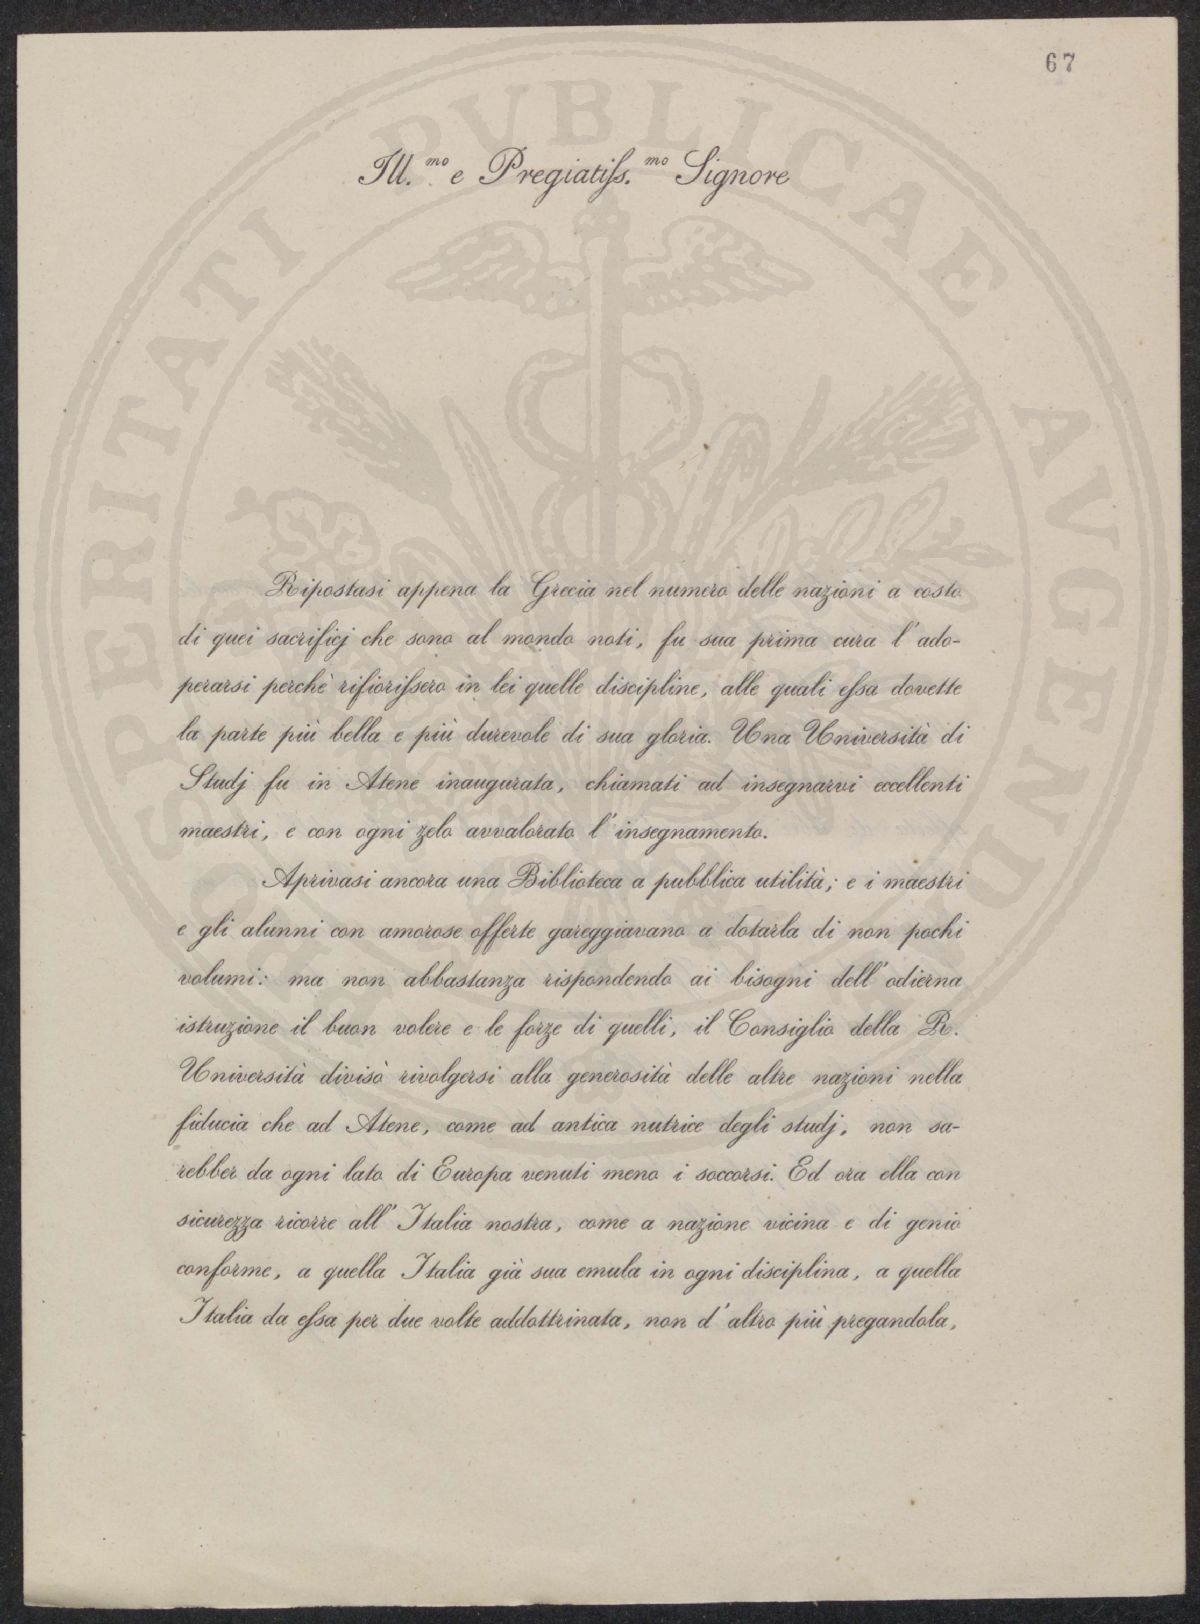 67
Ill.mo e Pregiatiss.mo Signore
Ripostasi appena la Grecia nel numero delle nazioni a costo
di quei sacrificj che sono al mondo noti, fu sua prima cura l'ado-
perarsi perchè rifiorissero in lei quelle discipline, alle quali essa dovette
la parte più bella e più durevole di sua gloria. Una Università di
Studj fu in Atene inaugurata, chiamati ad insegnarvi eccellenti
maestri, e con ogni zelo avvalorato l'insegnamento.
Aprivasi ancora una Biblioteca a pubblica utilità; e i maestri
e gli alunni con amorose offerte gareggiavano a dotarla di non pochi
volumi: ma non abbastanza rispondendo ai bisogni dell'odierna
istruzione il buon volere e le forze di quelli, il Consiglio della R.
Università divisò rivolgersi alla generosità delle altre nazioni nella
fiducia che ad Atene, come ad antica nutrice degli studj, non sa-
rebber da ogni lato di Europa venuti meno i soccorsi. Ed ora ella con
sicurezza ricorre all'Italia nostra, come a nazione vicina e di genio
conforme, a quella Italia già sua emula in ogni disciplina, a quella
Italia da essa per due volte addottrinata, non d'altro più pregandola,
PROSPERITATI PVBLICAE AVGENDAE